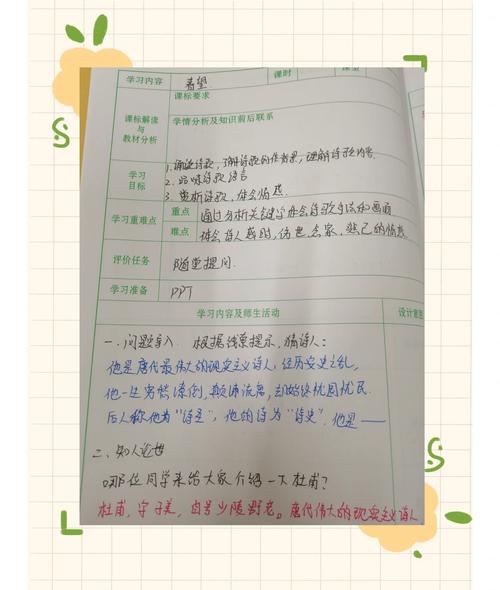 学习内容 春望 课时 课型
课标要求
课标解读
与
教材分析
学情分析及知识前后联系
学习
目标
1. 诵读诗歌，了解诗歌的作背景，理解诗歌内容
2. 品味诗歌语言
3. 赏析诗歌，体会情感
学习重难点
重点 通过分析关键字体会诗歌手法和画面
难点 体会诗人感时，伤世，念家，悲己的情感
评价任务 随堂提问.
学习准备 PPT
学习内容及师生活动 设计意图
一. 问题导入. 根据线索提示，猜诗人：
他是唐代最伟大的现实主义诗人，经历安史之乱，
他一生穷愁潦倒，颠沛流离，却始终忧国忧民.
后人称他为“诗圣”，他的诗为“诗史”. 他是——
二、知人论世
哪位同学来给大家介绍一下杜甫？
杜甫，字子美，自号少陵野老。唐代伟大的现实主义诗人